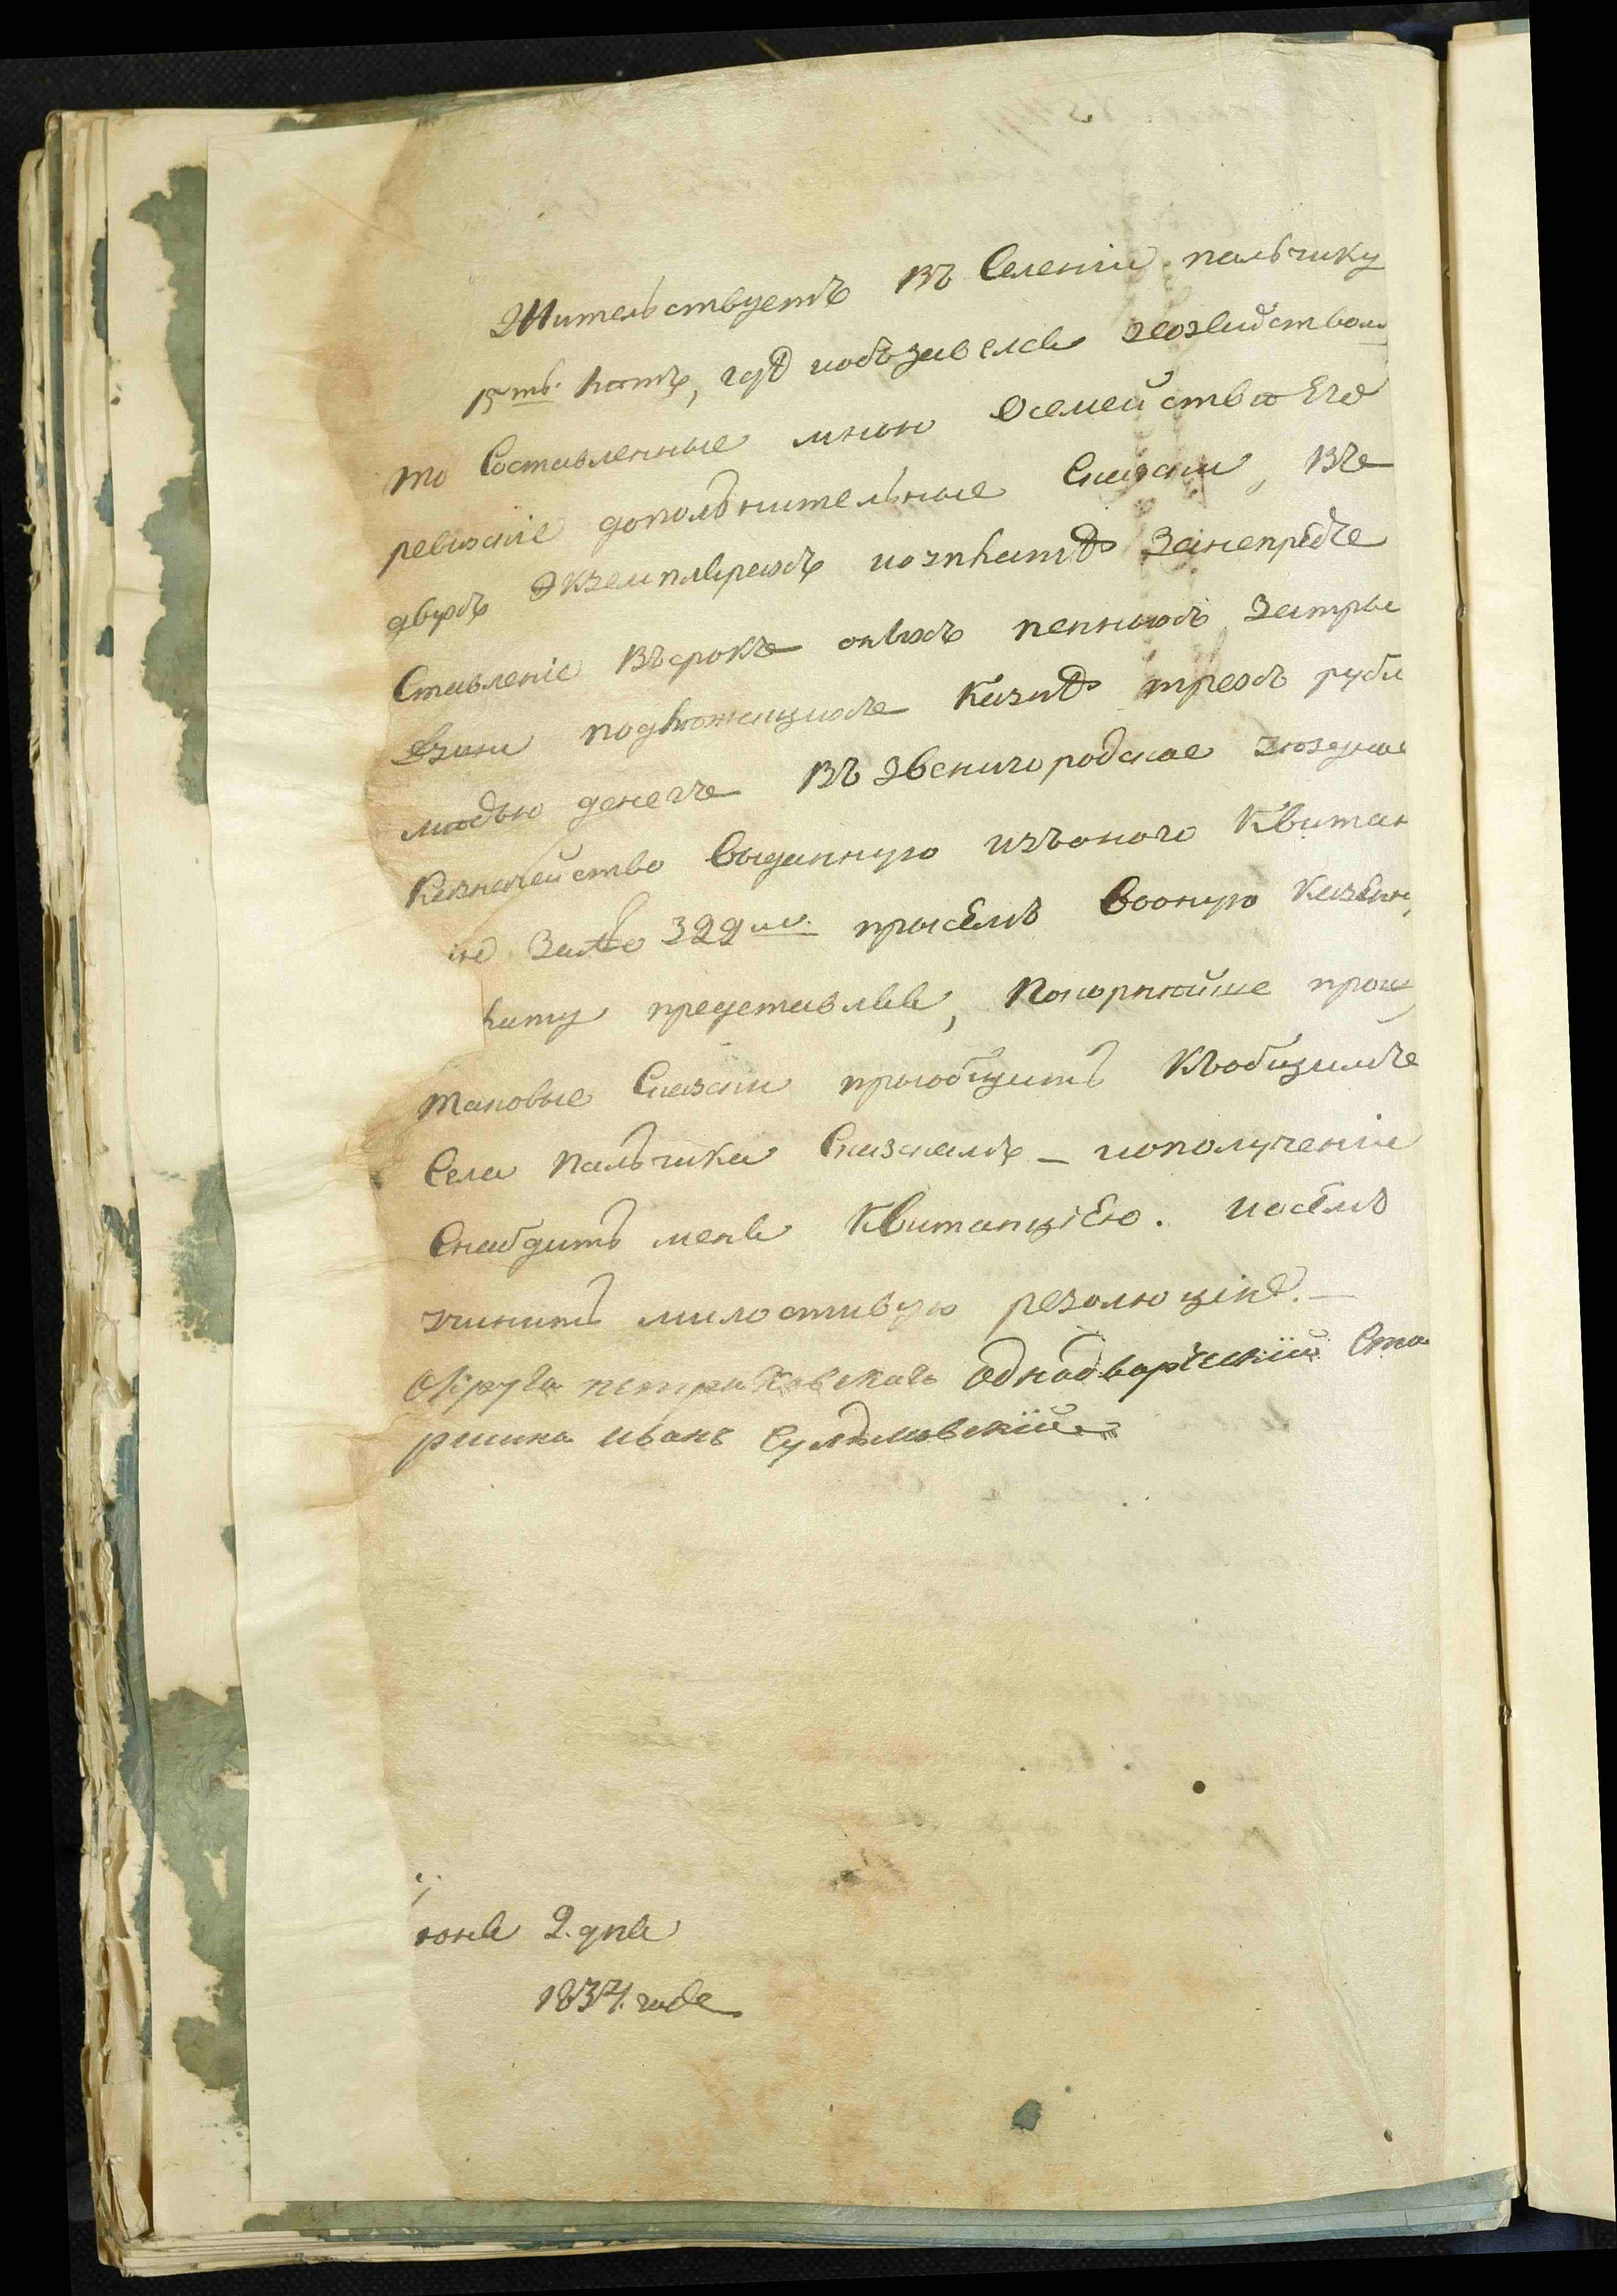 Жительствуетъ въ Селеніи пальчику
15ть лѣтъ, гдѣ иобзавелся хозяйством
то Составленные мною Осемействѣ Его
ревизскіе дополнительные Сказки, въ
двухъ Экземплярахъ иозплатѣ Занепредъ
Ставленіе Въсрокъ оныхъ пенныхъ Заутрые
подлежащихъ Казнѣ трехъ рубл
мѣдью денегъ Въ Звенигородское уездное
Казначейство выданную изъоного Квитан
За № 322м присемъ Вооную Казенн
лату представляя, Покорнейше прошу
таковые Сказки приобщить Кобщимъ
Села Пальчика Сказкамъ – иополученіи
Снабдить меня Квитанціею. иосемъ
учинить милостивую резолюцію. –
Округа петриковскаго Однодворческій Ста
ршина Иванъ Сулимовскій
юня 2. дня
1834. года